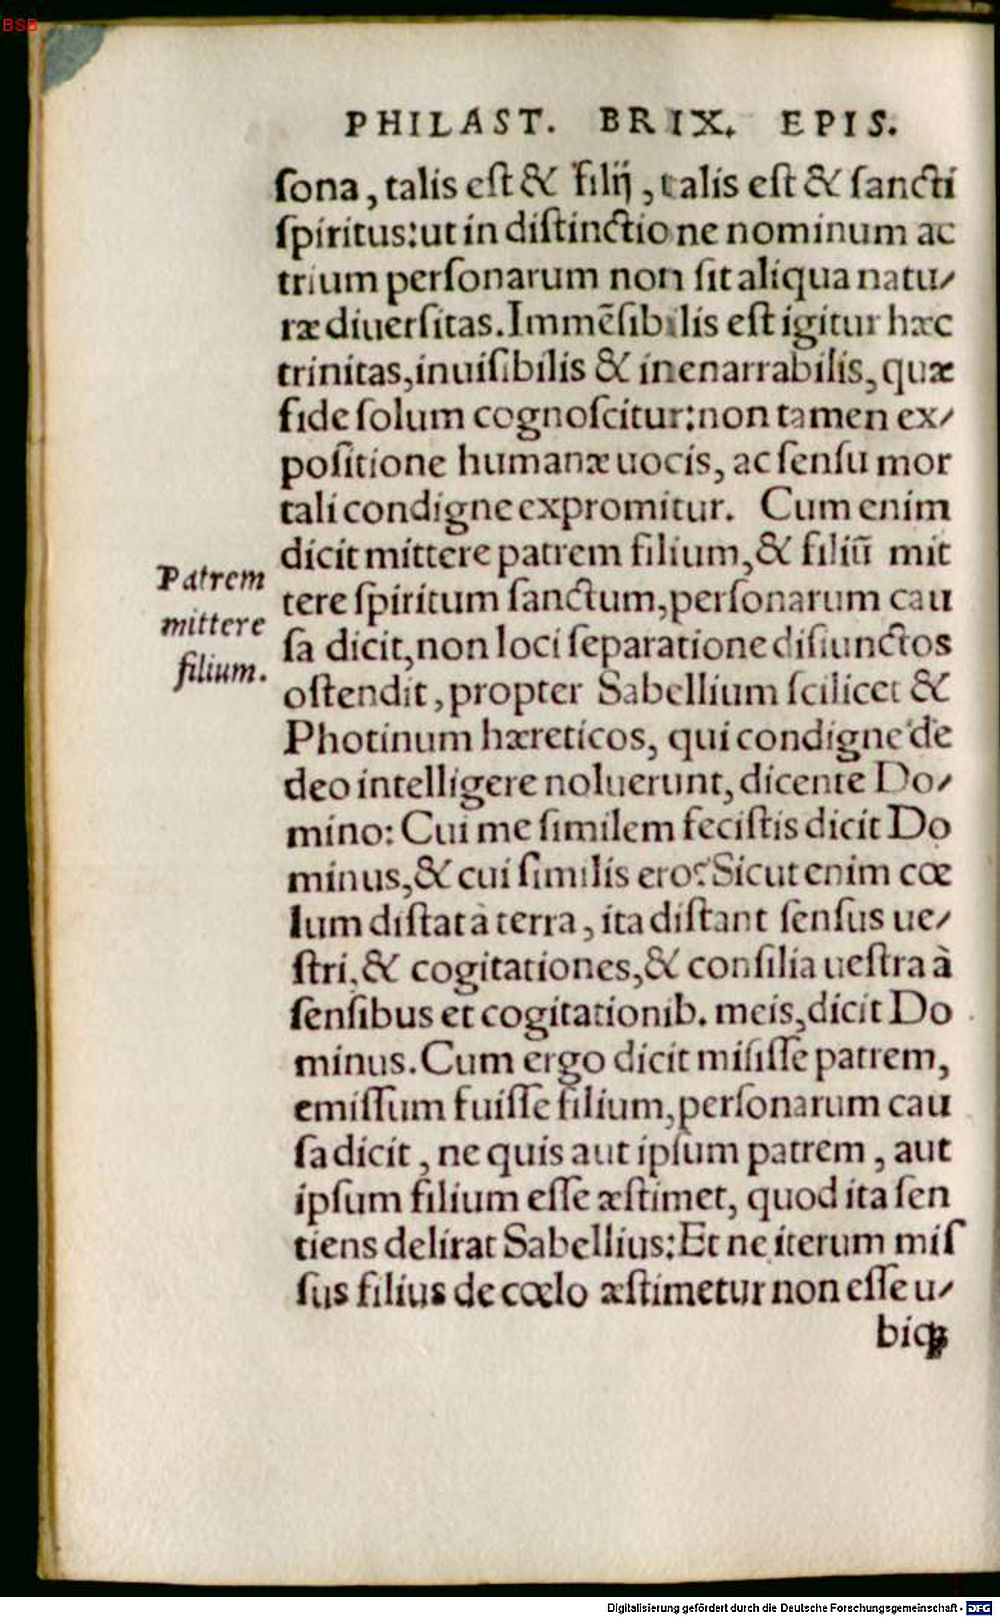 BSB
PHILAST. BRIX. EPIS.
ſona, talis eſt & filij, talis eſt & ſancti
ſpiritus: ut in diſtinctione nominum ac
trium perſonarum non ſit aliqua natu⸗
ræ diuerſitas. Immẽſibilis eſt igitur hæc
trinitas, inuiſibilis & inenarrabilis, quæ
fide ſolum cognoſcitur: non tamen ex⸗
poſitione humanæ uocis, ac ſenſu mor
tali condigne expromitur. Cum enim
dicit mittere patrem filium, & filiũ mit
tere ſpiritum ſanctum, perſonarum cau
ſa dicit, non loci ſeparatione diſiunctos
oſtendit, propter Sabellium ſcilicet &
Photinum hæreticos, qui condigne de
deo intelligere noluerunt, dicente Do⸗
mino: Cui me ſimilem feciſtis dicit Do
minus, & cui ſimilis ero? Sicut enim cœ
lum diſtat à terra, ita diſtant ſenſus ue⸗
ſtri, & cogitationes, & conſilia ueſtra à
ſenſibus et cogitationib. meis, dicit Do
minus. Cum ergo dicit miſiſſe patrem,
emiſſum fuiſſe filium, perſonarum cau
ſa dicit, ne quis aut ipſum patrem, aut
ipſum filium eſſe æſtimet, quod ita ſen
tiens delirat Sabellius: Et ne iterum miſ
ſus filius de cœlo æſtimetur non eſſe u⸗
biqꝫ
Patrem
mittere
filium.
Digitalisierung gefördert durch die Deutsche Forschungsgemeinschaft - DFG